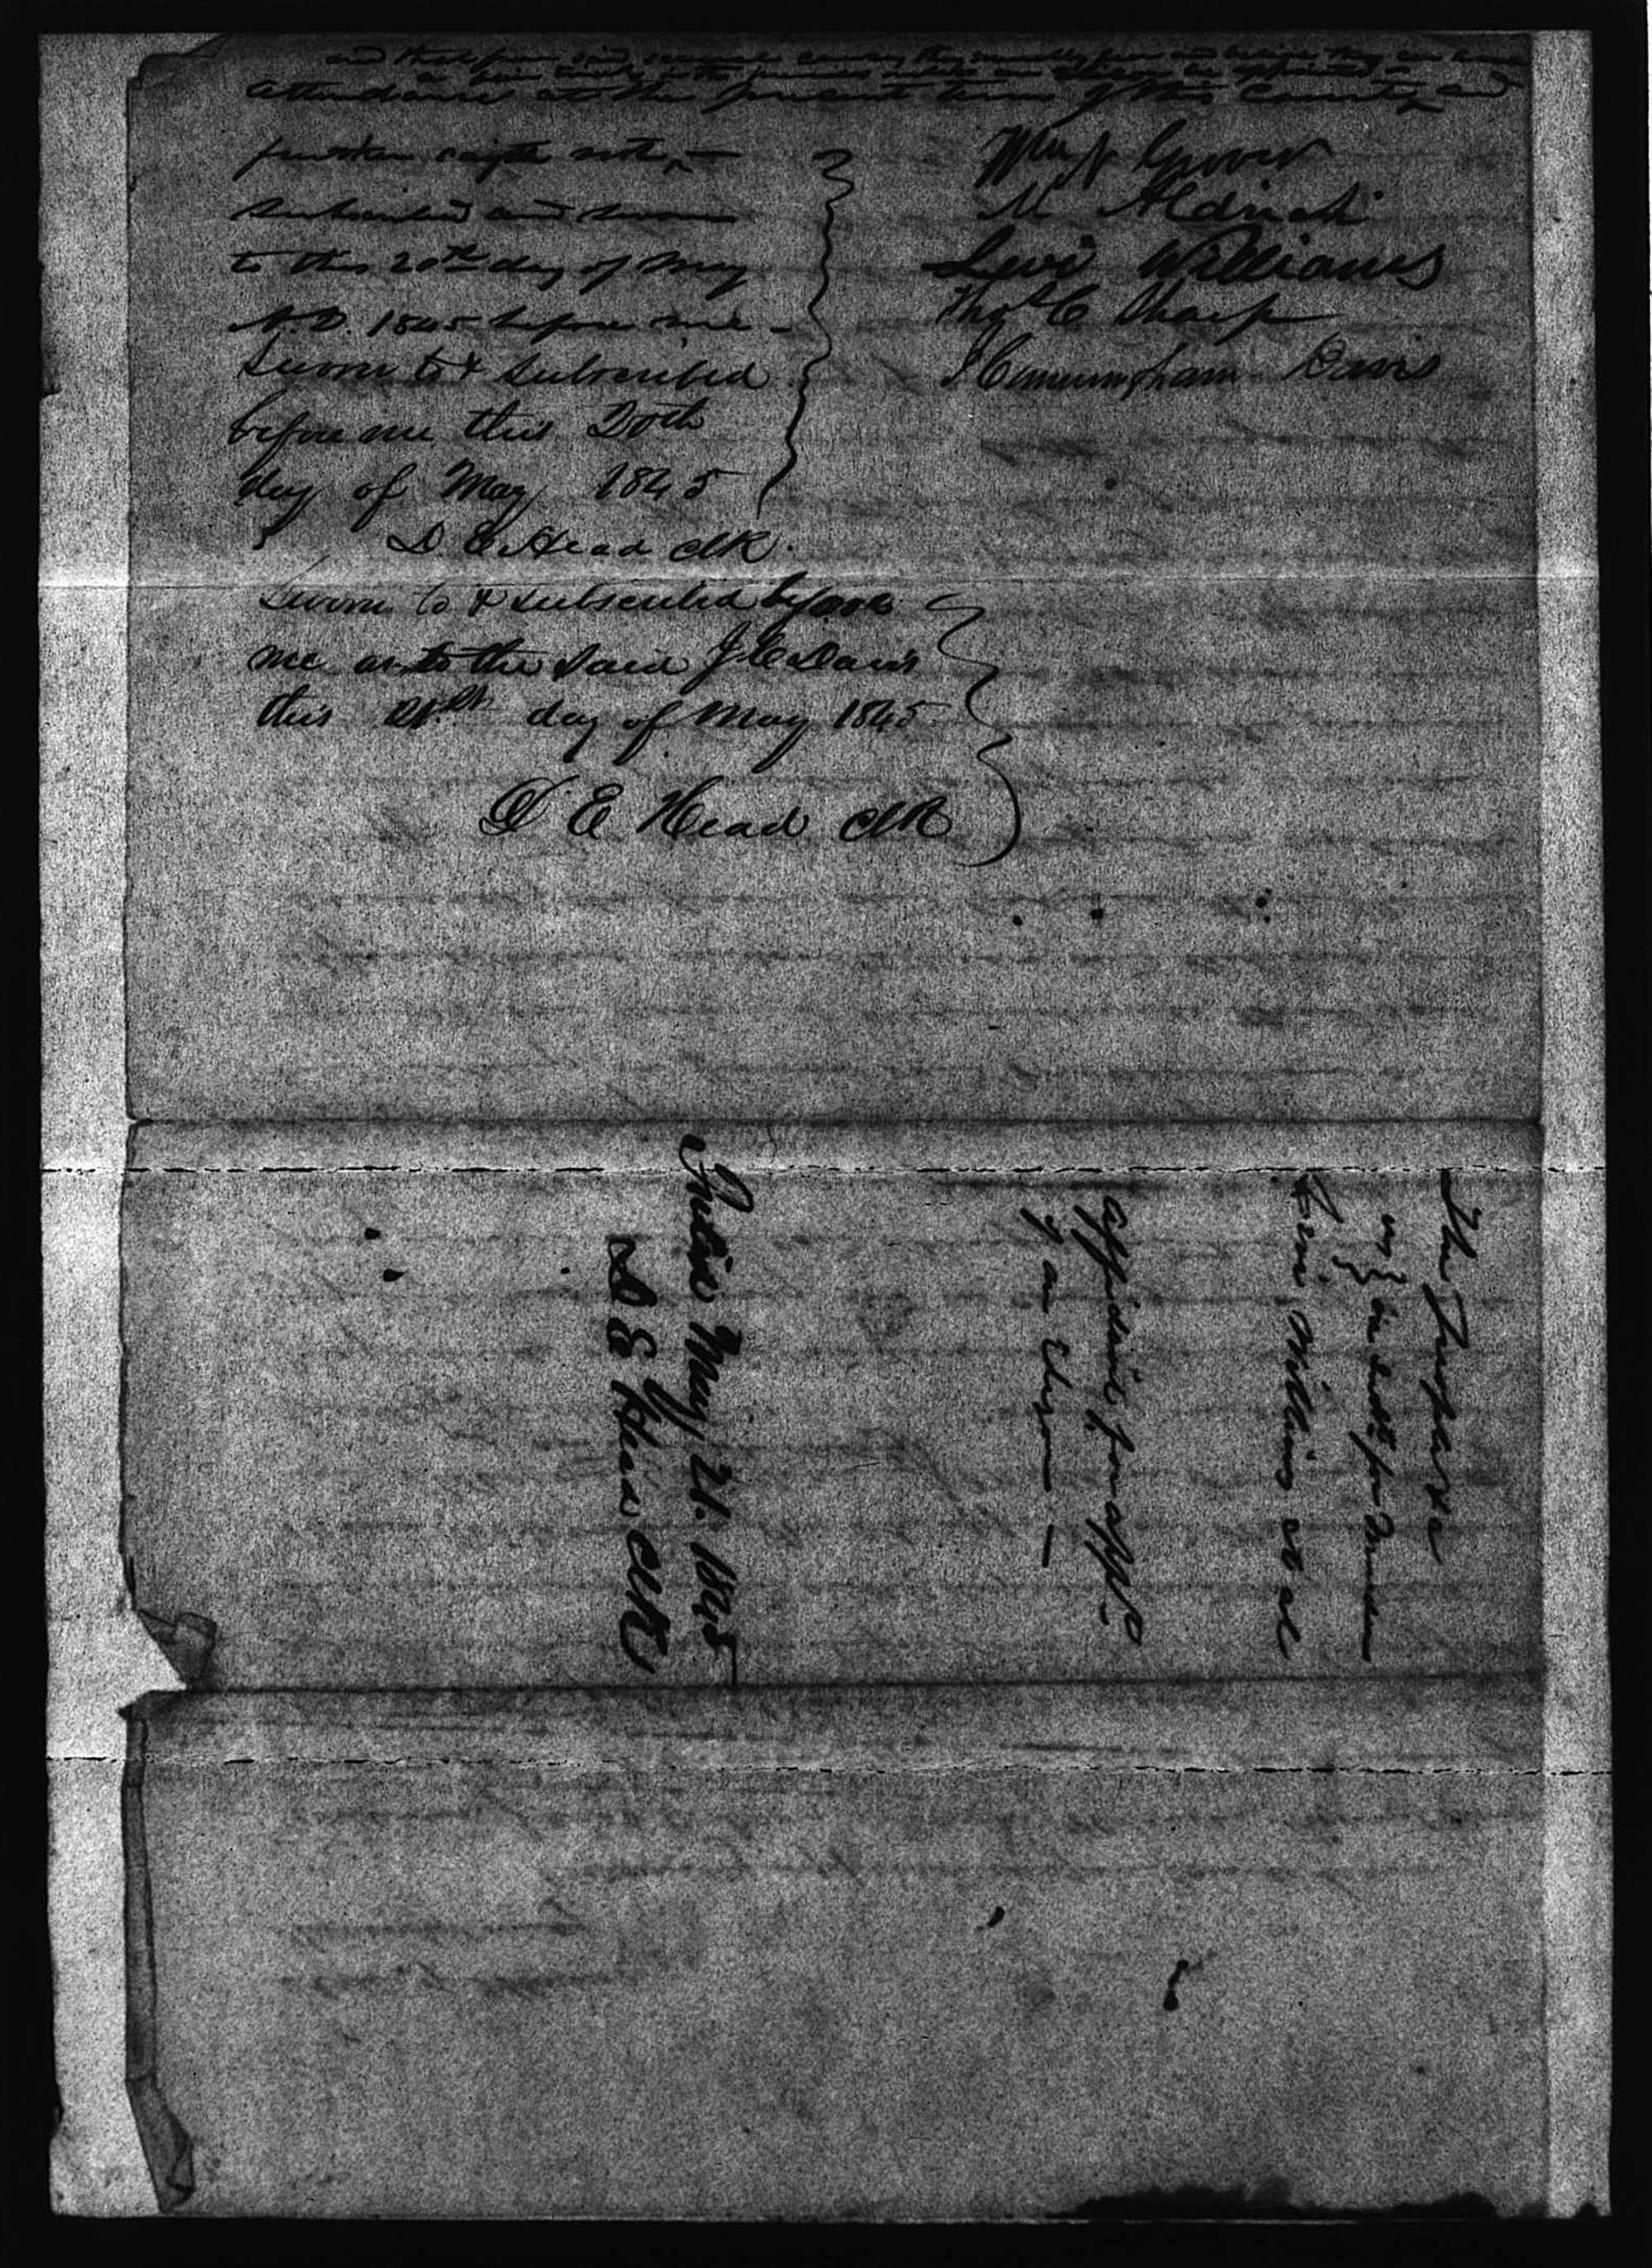 and that from said
attendance at the present term of this County and
further saith not,—
Subscribed and sworn
to this 20th day of May
A.D. 1845 before me—
Sworn to & Subscribed
before me this 20th
day of May 1845
D E Head clk
Wm N Grover
M Aldrich
Levi Williams
Thos C Sharp
J Cunningham Davis
Sworn to & subscribed before
me as to the said J C Davis
this 21st day of May 1845
D E Head clk
The People &c
vs } in indt for Murder
Levi Williams et al
affidavit for appt.
of an Elisor—
Filed May 21. 1845
D E Head clk